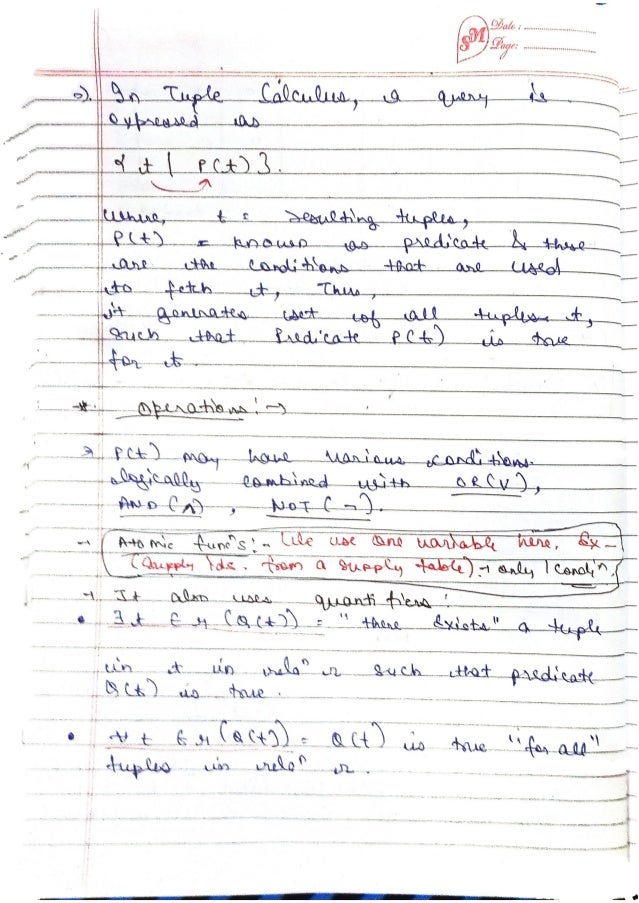 SM Date : ..................
Page: ..................
⇒). In Tuple Calculus, a query is
expressed as
{ t | P(t) }.
where, t = resulting tuples,
P(t) = known as predicate & these
are the conditions that are used
to fetch t, Thus,
it generates set of all tuples t,
such that Predicate P(t) is true
for t.
* Operations :→
→ P(t) may have various conditions
logically combined with OR (∨),
AND (∧) , NOT (¬).
→ Atomic funcⁿs :- We use one variable here. Ex-
(Supply Ids. from a supply table) → only 1 condiⁿ.
→ It also uses quantifiers :
• ∃ t ∈ r (Q(t)) = "there exists" a tuple
in t in relaⁿ r such that predicate
Q(t) is true.
• ∀ t ∈ r (Q(t)) = Q(t) is true "for all"
tuples in relaⁿ r.